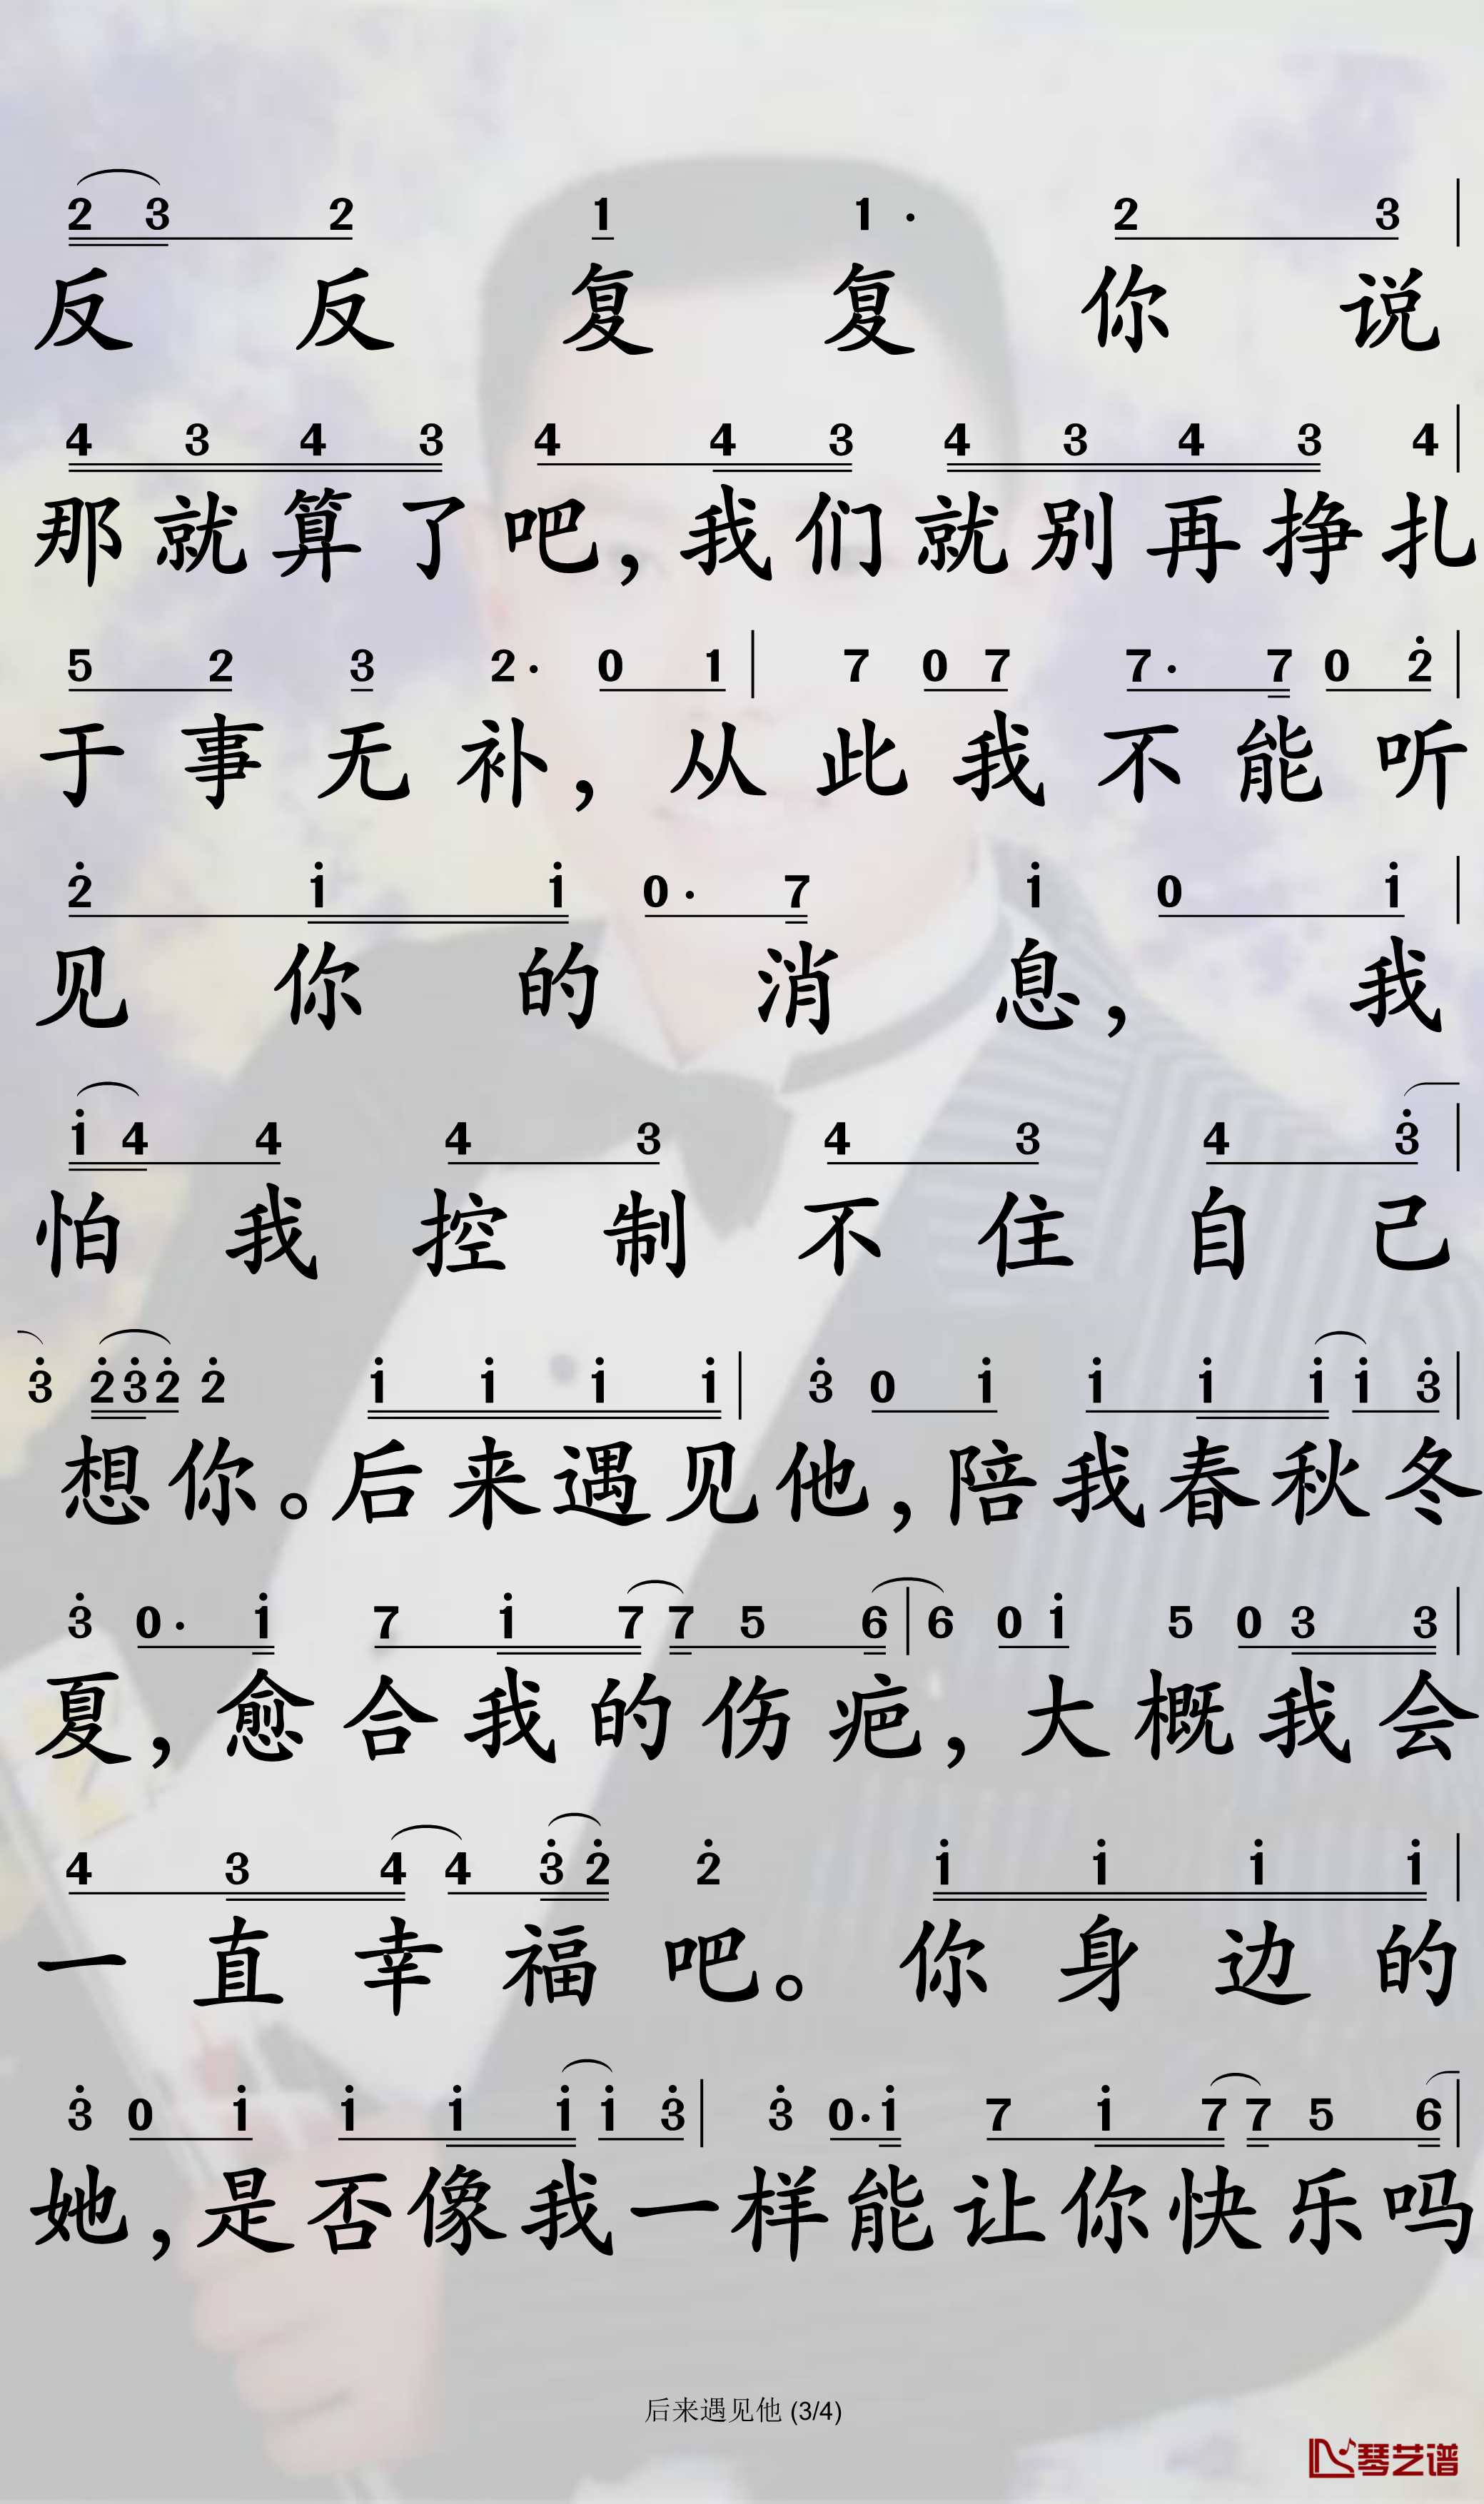 2 3 2 1 1 · 2 3
反 反 复 复 你 说
4 3 4 3 4 4 3 4 3 4 3 4
那 就 算 了 吧， 我 们 就 别 再 挣 扎
5 2 3 2 · 0 1 7 0 7 7 · 7 0 2̇
于 事 无 补， 从 此 我 不 能 听
2̇ 1̇ 1̇ 0 · 7 1̇ 0 1̇
见 你 的 消 息， 我
1̇ 4 4 4 3 4 3 4 3̇
怕 我 控 制 不 住 自 己
3̇ 2̇ 3̇ 2̇ 2̇ 1̇ 1̇ 1̇ 1̇ 3̇ 0 1̇ 1̇ 1̇ 1̇ 1̇ 3̇
想 你。 后 来 遇 见 他， 陪 我 春 秋 冬
3̇ 0 · 1̇ 7 1̇ 7 7 5 6 6 0 1̇ 5 0 3 3
夏， 愈 合 我 的 伤 疤， 大 概 我 会
4 3 4 4 3̇ 2̇ 2̇ 1̇ 1̇ 1̇ 1̇
一 直 幸 福 吧。 你 身 边 的
3̇ 0 1̇ 1̇ 1̇ 1̇ 1̇ 3̇ 3̇ 0 · 1̇ 7 1̇ 7 7 5 6
她， 是 否 像 我 一 样 能 让 你 快 乐 吗
后来遇见他 (3/4)
琴艺谱